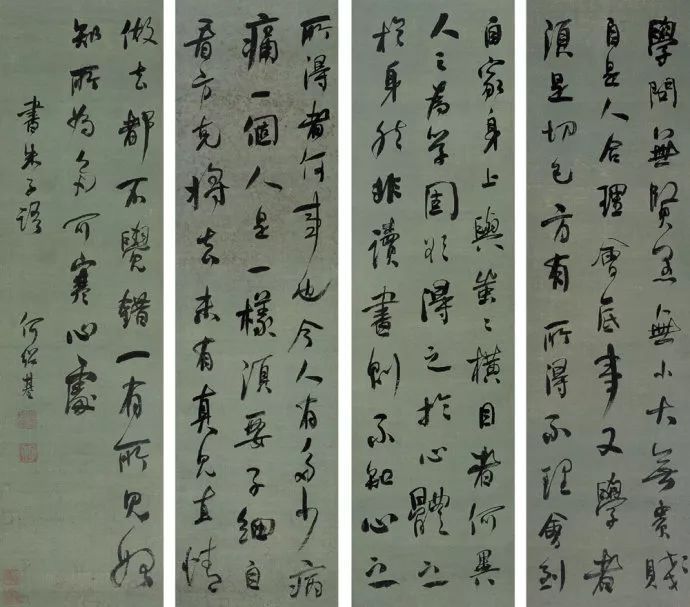 學問無賢愚無小大無貴賤
自是人合理會底事又學者
須是切己方有所得不理會到
自家身上與蚩〻橫目者何異
人之為学固欲得之於心體之
於身然非讀書則不知心之
所得者何事也今人有多少病
痛一個人是一樣須要子細自
看方克將去未有真見直情
做去都不覺錯一有所見始
知所為多可寒心處
書朱子語
何紹基